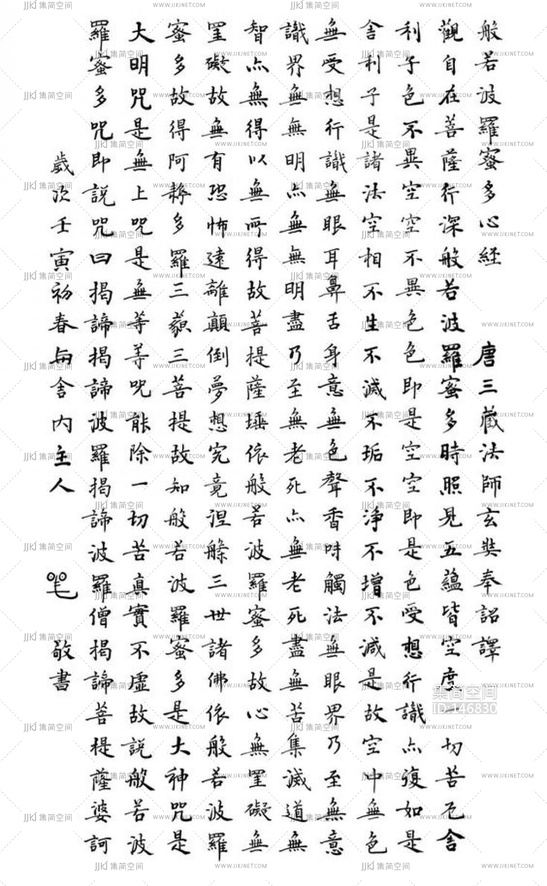 般若波羅蜜多心経 唐三蔵法師玄奘奉詔譯
觀自在菩薩行深般若波羅蜜多時照見五蘊皆空度一切苦厄舍
利子色不異空空不異色色即是空空即是色受想行識亦復如是
舍利子是諸法空相不生不滅不垢不淨不增不減是故空中無色
無受想行識無眼耳鼻舌身意無色聲香味觸法無眼界乃至無意
識界無無明亦無無明盡乃至無老死亦無老死盡無苦集滅道無
智亦無得以無所得故菩提薩埵依般若波羅蜜多故心無罣礙無
罣礙故無有恐怖遠離顛倒夢想究竟涅槃三世諸佛依般若波羅
蜜多故得阿耨多羅三藐三菩提故知般若波羅蜜多是大神咒是
大明咒是無上咒是無等等咒能除一切苦真實不虛故説般若波
羅蜜多咒即説咒曰揭諦揭諦波羅揭諦波羅僧揭諦菩提薩婆訶
歲次壬寅初春与舍内主人 敬書
集简空间
ID:146830
JJKJ集简空间 WWW.JJKJNET.COM